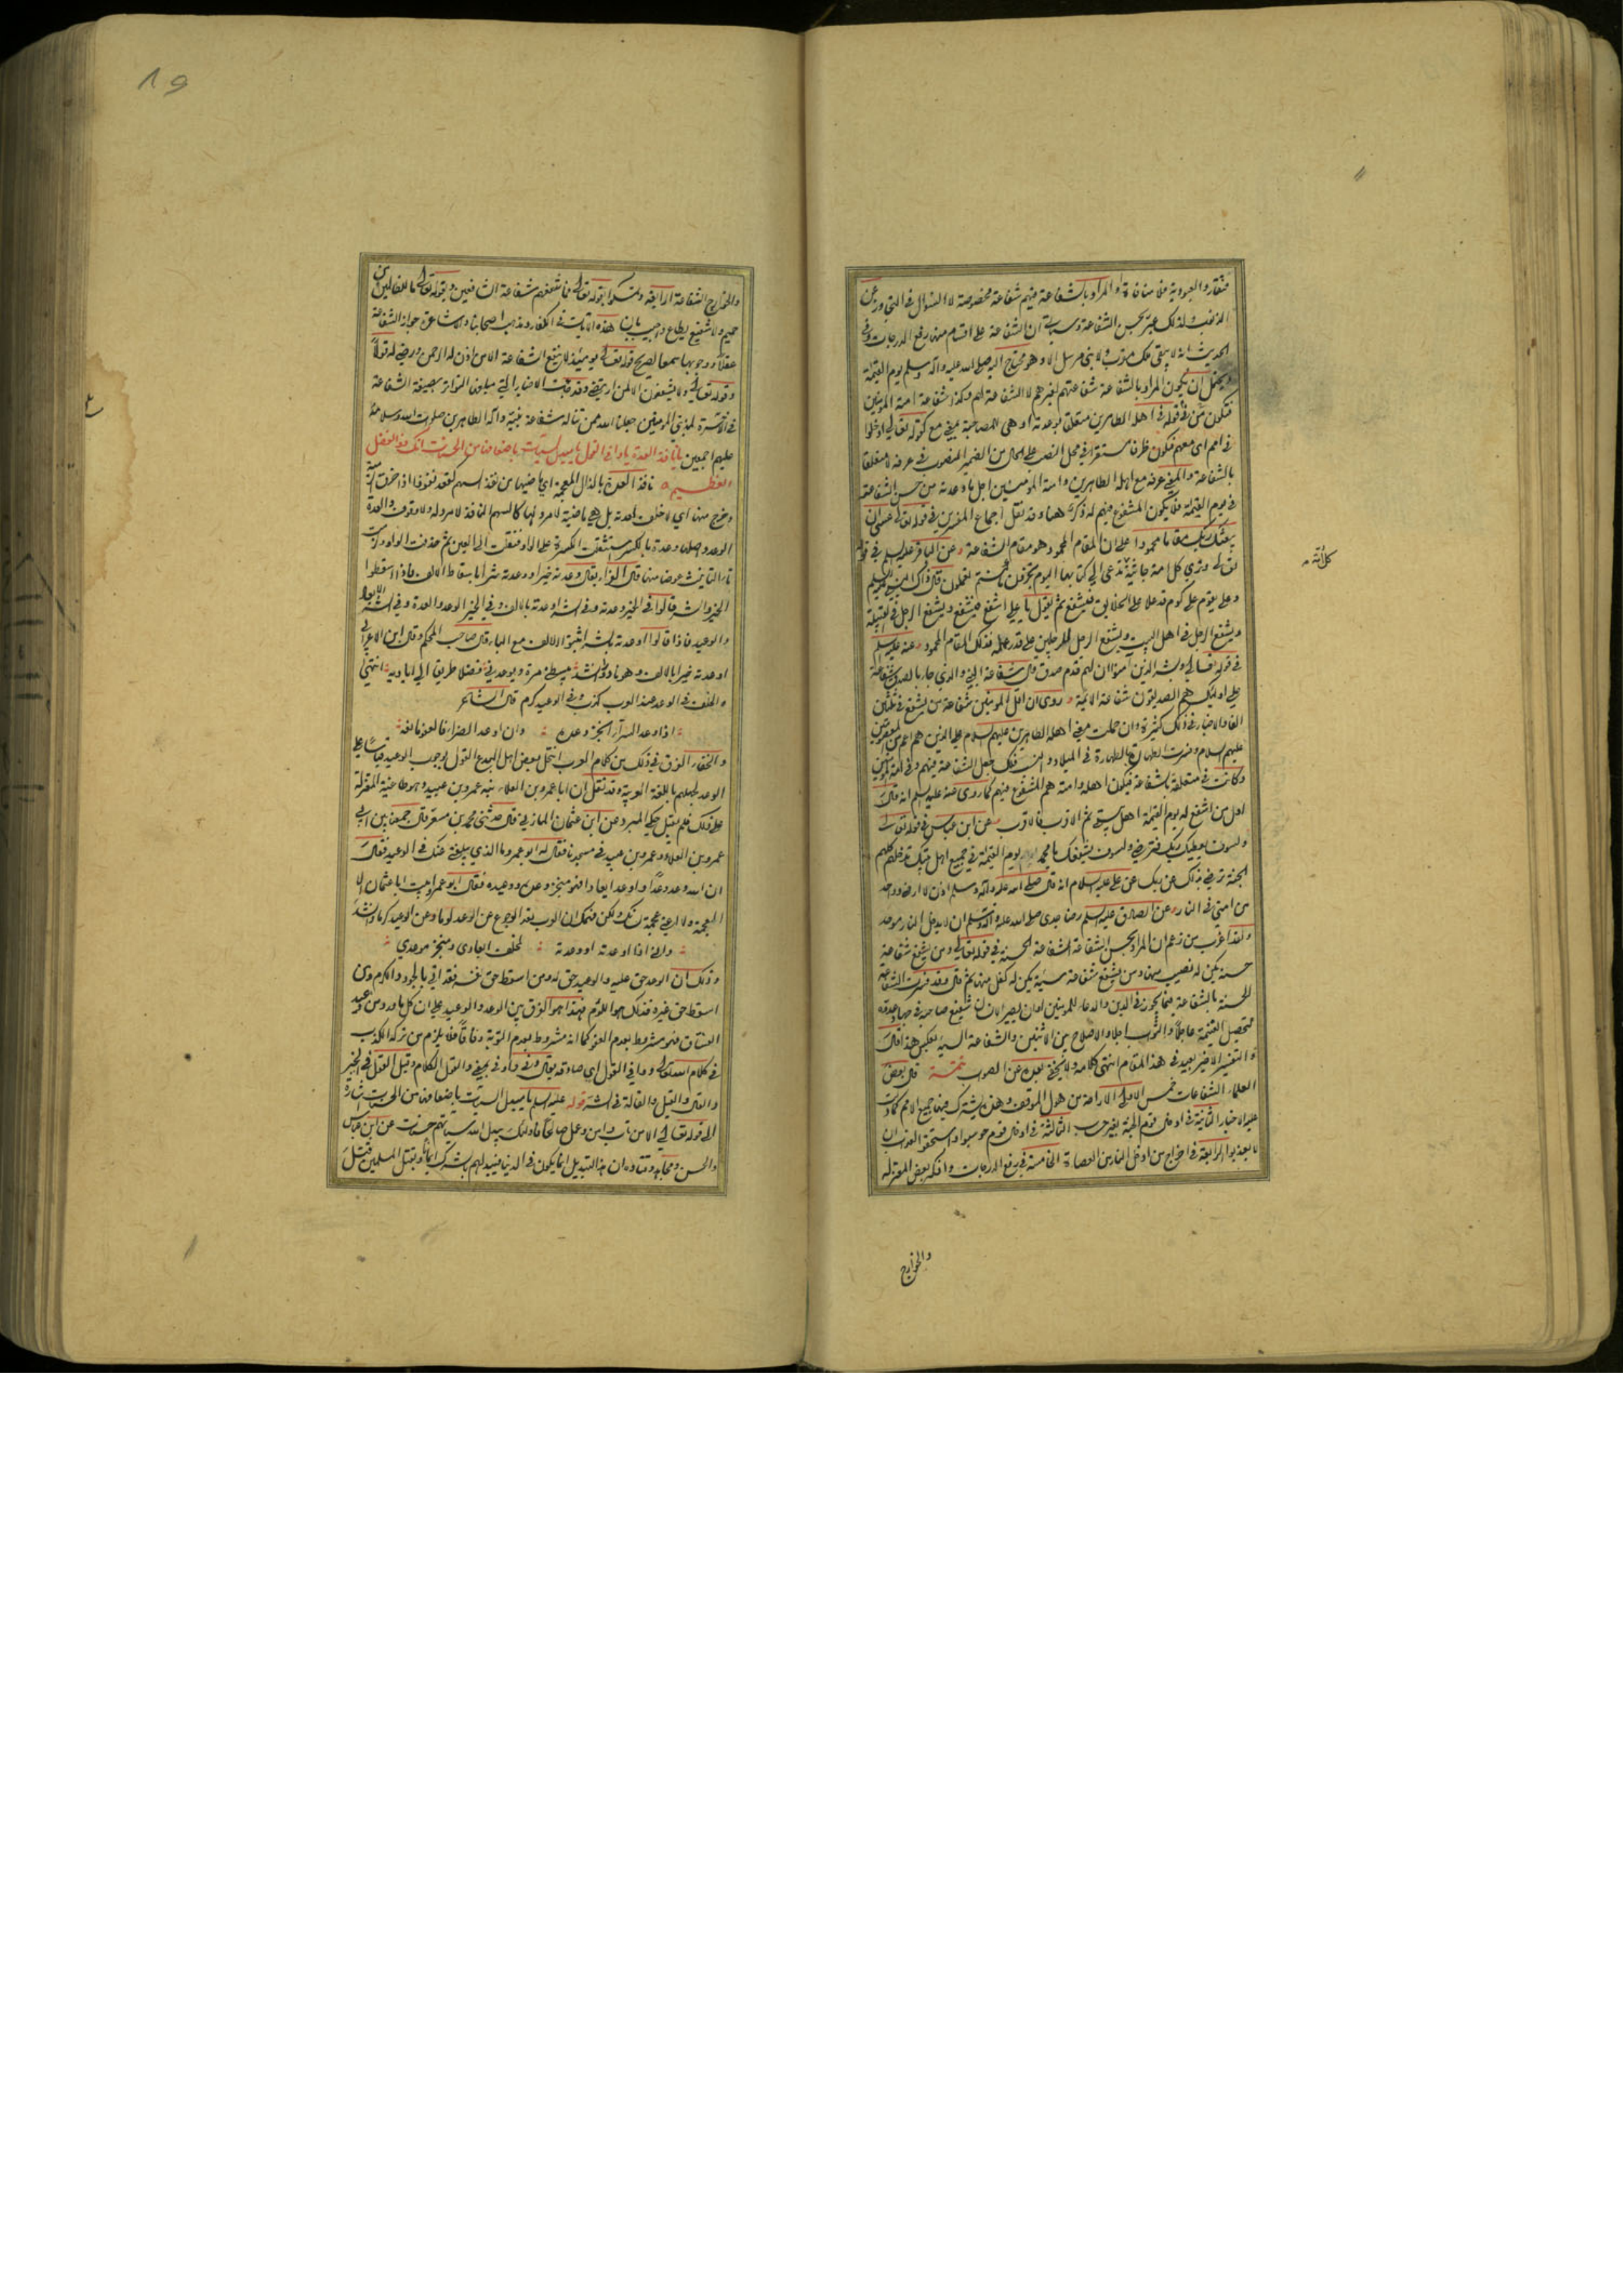 فتقار والعبودية فلا منافاة والمراد بالشفاعة فيهم شفاعة مخصوصة لا السؤال في التجاوز عن
الذنوب ولذلك عبر بحسن الشفاعة وسيأتي ان الشفاعة على اقسام منها رفع الدرجات وفي
الحديث انه لا يبقى ملك مقرب ولا نبي مرسل الا وهو محتاج اليه صلى الله عليه وآله وسلم يوم القيمة
ويحتمل ان يكون المراد بالشفاعة شفاعتهم لغيرهم لا الشفاعة لهم وكذا شفاعة امته المؤمنين
فتكون من في قوله في اهله الطاهرين متعلقا بوعدته او هي للمصاحبة بمعنى مع كقوله تعالى ادخلوا
في امم اي معهم فتكون ظرفا مستقرا في محل النصب على الحال من الضمير المنصوب في عرفه لا متعلقا
بالشفاعة والمعنى عرفه مع اهله الطاهرين وامته المؤمنين اجل ما وعدته من حسن الشفاعة
في يوم القيمة فلا يكون المشفوع فيهم له ذكر هنا وقد نقل اجماع المفسرين في قوله تعالى عسى ان
يبعثك ربك مقاما محمودا على ان المقام المحمود هو مقام الشفاعة وعن الباقر عليه السلم في قوله
تعالى وترى كل امة جاثية كل امة تدعى الى كتابها اليوم تجزون ما كنتم تعملون قال ذاك النبي عليه السلم
وعلي يقوم على كوم قد علا على الخلايق فيشفع ثم يقول يا علي اشفع فيشفع ويشفع الرجل في القبيلة
ويشفع الرجل في اهل البيت ويشفع الرجل للرجلين على قدر عمله فذلك المقام المحمود وعنه عليه السلم
في قوله تعالى وبشر الذين آمنوا ان لهم قدم صدق قال شفاعة النبي والذي جاء بالصدق شفاعة
علي اولئك هم الصديقون شفاعة الائمة وروى ان اقل المؤمنين شفاعة من يشفع في ثلثين
الفا والاخبار في ذلك كثيرة وان حملت معنى اهله الطاهرين عليهم السلام على الذين هم اعم من المعصومين
عليهم السلام وفسرت الطهارة بالطهارة في الميلاد فلك جعل الشفاعة فيهم وفي امته المؤمنين
وكانت في متعلقة بالشفاعة فيكون اهله وامته هم المشفوع فيهم كما روى عنه عليه السلم انه قال
اول من اشفع له يوم القيمة اهل بيتي ثم الاقرب فالاقرب وعن ابن عباس في قوله تعالى
ولسوف يعطيك ربك فترضى ولسوف يشفعك يا محمد يوم القيمة في جميع اهل بيتك فتدخلهم كلهم
الجنة ترضى بذلك عن ربك عن علي عليه السلام انه قال صلى الله عليه وآله وسلم اذن لا ارضى وواحد
من امتي في النار وعن الصادق عليه السلم رضا جدي صلى الله عليه وآله وسلم ان لا يدخل النار موحد
ولقد اغرب من زعم ان المراد بحسن الشفاعة الشفاعة الحسنة في قوله تعالى ومن يشفع شفاعة
حسنة يكن له نصيب منها ومن يشفع شفاعة سيئة يكن له كفل منها ثم قال وقد فسرت الشفاعة
الحسنة بالشفاعة فيما يجوز في الدين والدعاء للمؤمنين
لتحصيل الغنيمة عاجلا والثواب اجلا والاصلاح بين الاثنين والشفاعة السيئة بعكس هذا قال
والتفسير الاخير بعيد في هذا المقام انتهى كلامه ولا يخفى بعده عن الصواب تتمة قال بعض
العلماء الشفاعات خمس الاولى الاراحة من هول الموقف وهذه يشترك فيها جميع الامم كما دلت
عليه الاخبار الثانية في ادخال قوم الجنة بغير حساب الثالثة في ادخال قوم حوسبوا واستحقوا العذاب ان
لا يعذبوا الرابعة في اخراج من ادخل النار من العصاة الخامسة في رفع الدرجات وانكر بعض المعتزلة
كل امة
والخوارج
١٩
والخوارج الشفاعة الرابعة وتمسكوا بقوله تعالى فما تنفعهم شفاعة الشافعين وبقوله تعالى ما للظالمين من
حميم ولا شفيع يطاع واجيب بان هذه الآيات في الكفار ومذهب اصحابنا والاشاعرة جواز الشفاعة
عقلا ووجوبها سمعا لصريح قوله تعالى يومئذ لا تنفع الشفاعة الا من اذن له الرحمن ورضي له قولا
وقوله تعالى ولا يشفعون الا لمن ارتضى وقد جاءت الاخبار التي مبلغها التواتر بصحة الشفاعة
في الآخرة لمذنبي المؤمنين جعلنا الله ممن تناله شفاعة نبيه وآله الطاهرين صلوات الله وسلامه
عليهم اجمعين يا نافذ العدة يا وافي القول يا مبدل السيئات باضعافها من الحسنات انك ذو الفضل
العظيم نافذ العدة بالذال المعجمة اي ماضيها من نفذ السهم كقعد نفوذا اذا خرق الرمية
وخرج منها اي لا خلف لعدته بل هي ماضية لا مرد لها كالسهم النافذ لا مرد له ولا وقوف والعدة
الوعد واصلها وعدة بالكسر استثقلت الكسرة على الواو فنقلت الى العين ثم حذفت الواو وزيدت
تاء التانيث عوضا منها قال الفراء يقال وعدته خيرا ووعدته شرا باسقاط الالف فاذا اسقطوا
الخير والشر قالوا في الخير وعدته وفي الشر اوعدته بالالف وفي الخير الوعد والعدة وفي الشر الايعاد
والوعيد فاذا قالوا اوعدته بالشر اثبتوا الالف مع الباء وقال صاحب المحكم وقال ابن الاعرابي
اوعدته خيرا بالالف وهو نادر وانشد يبسطني مرة ويوعدني فضلا طريفا الى اياديه انتهى
والخلف في الوعد عند العرب كذب وفي الوعيد كرم قال الشاعر
اذا وعد السراء انجز وعده وان اوعد الضراء فالعفو مانعه
ولخفاء الفرق في ذلك من كلام العرب انتحل بعض اهل البدع القول بوجوب الوعيد قياسا على
الوعد لجهلهم باللغة العربية وقد نقل ان ابا عمرو بن العلاء نبه عمرو بن عبيد وهو طاغية المعتزلة
على ذلك فلم يقبل حكى المبرد عن ابن عثمان المازني قال حدثني محمد بن مسعر قال جمعنا بين ابي
عمرو بن العلاء وعمرو بن عبيد في مسجدنا فقال له ابو عمرو ما الذي يبلغني عنك في الوعيد فقال
ان الله وعد وعدا واوعد ايعادا فهو منجز وعده ووعيده فقال ابو عمرو ابيت ابا عثمان الا
العجمة ولا اعني عجمة لسانك ولكن فهمك ان العرب تعد الرجوع عن الوعد لوما وعن الوعيد كرما وانشد
واني اذا اوعدته او وعدته لمخلف ايعادي ومنجز موعدي
وذلك ان الوعد حق عليه والوعيد حق له ومن اسقط حق نفسه فقد اتى بالجود والكرم ومن
اسقط حق غيره فذلك هو اللؤم فهذا هو الفرق بين الوعد والوعيد على ان كل ما ورد من وعيد
الفساق فهو مشروط بعدم العفو كما انه مشروط بعدم التوبة وفاقا فلا يلزم من تركه الكذب
في كلام الله تعالى ووافي القول اي صادقه يقال وفى واوفى بمعنى والقول الكلام وقيل القول في الخير
والقال والقيل والقالة في الشر قوله عليه السلم يا مبدل السيئات باضعافها من الحسنات اشارة
الى قوله تعالى الا من تاب وامن وعمل صالحا فاولئك يبدل الله سيئاتهم حسنات عن ابن عباس
والحسن ومجاهد وقتادة ان هذا التبديل انما يكون في الدنيا فيبدلهم بالشرك ايمانا وبقتل المسلمين قتل